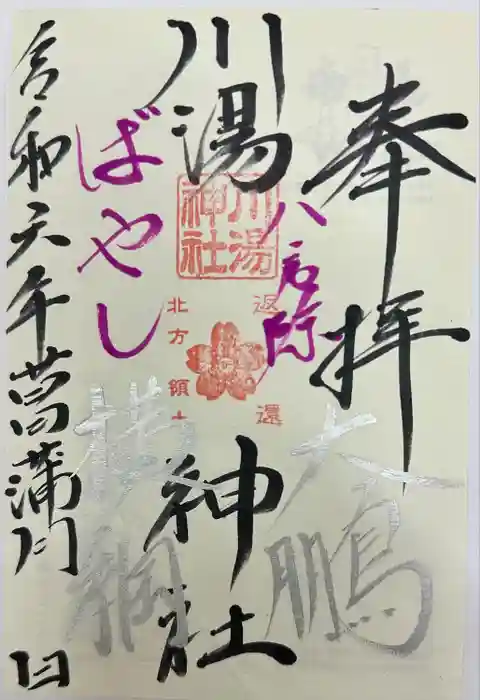 奉拝
大鵬
返還
川湯神社
川湯神社
北方領土
ばやし
横綱
令和元年菖蒲月 日